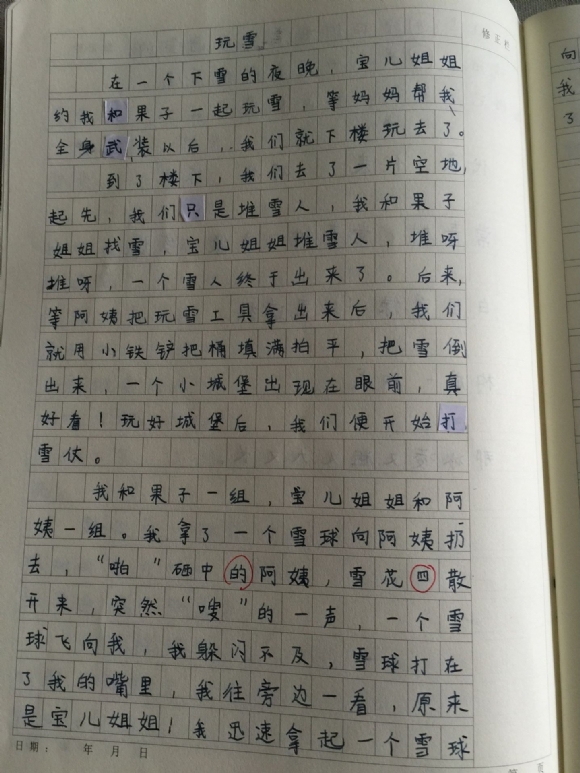 玩雪
修正栏
在一个下雪的夜晚，宝儿姐姐
约我和果子一起玩雪，等妈妈帮我
全身武装以后，我们就下楼玩去了。
到了楼下，我们去了一片空地，
起先，我们只是堆雪人，我和果子
姐姐找雪，宝儿姐姐堆雪人，堆呀
堆呀，一个雪人终于出来了。后来，
等阿姨把玩雪工具拿出来后，我们
就用小铁铲把桶填满拍平，把雪倒
出来，一个小城堡出现在眼前，真
好看！玩好城堡后，我们便开始打
雪仗。
我和果子一组，宝儿姐姐和阿
姨一组。我拿了一个雪球向阿姨扔
去，“啪”砸中的阿姨，雪花四散
开来，突然“嗖”的一声，一个雪
球飞向我，我躲闪不及，雪球打在
了我的嘴里，我往旁边一看，原来
是宝儿姐姐！我迅速拿起一个雪球
日期： 年 月 日
页
向
我
了